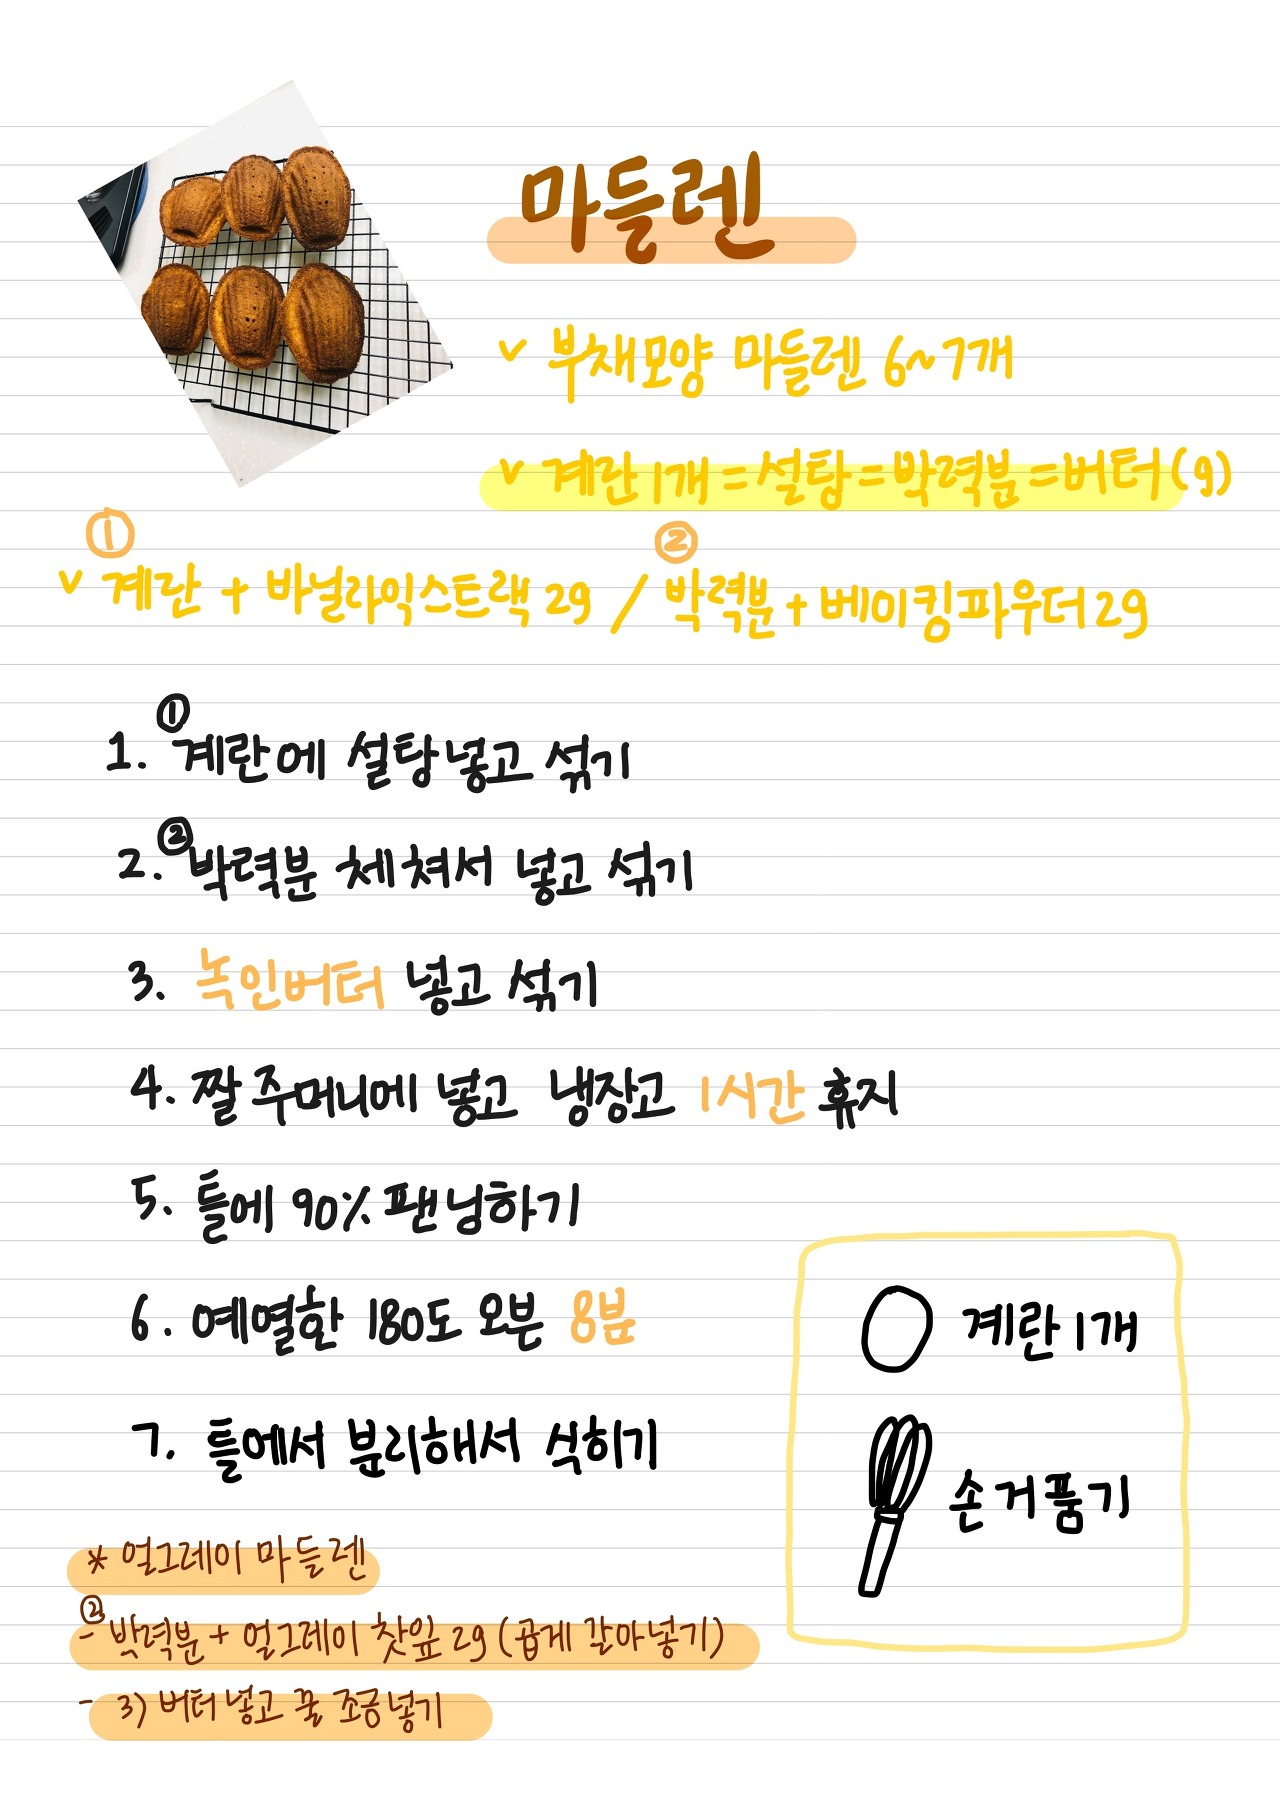 마들렌
v 부채모양 마들렌 6~7개
v 계란 1개 = 설탕 = 박력분 = 버터 (g)
① ②
v 계란 + 바닐라익스트랙 2g / 박력분 + 베이킹파우더 2g
1. ①계란에 설탕넣고 섞기
2. ②박력분 체쳐서 넣고 섞기
3. 녹인버터 넣고 섞기
4. 짤주머니에 넣고 냉장고 1시간 휴지
5. 틀에 90% 팬닝하기
6. 예열한 180도 오븐 8분
7. 틀에서 분리해서 식히기
계란 1개
손거품기
* 얼그레이 마들렌
- ②박력분 + 얼그레이 찻잎 2g (곱게 갈아넣기)
- 3) 버터 넣고 꿀 조금 넣기